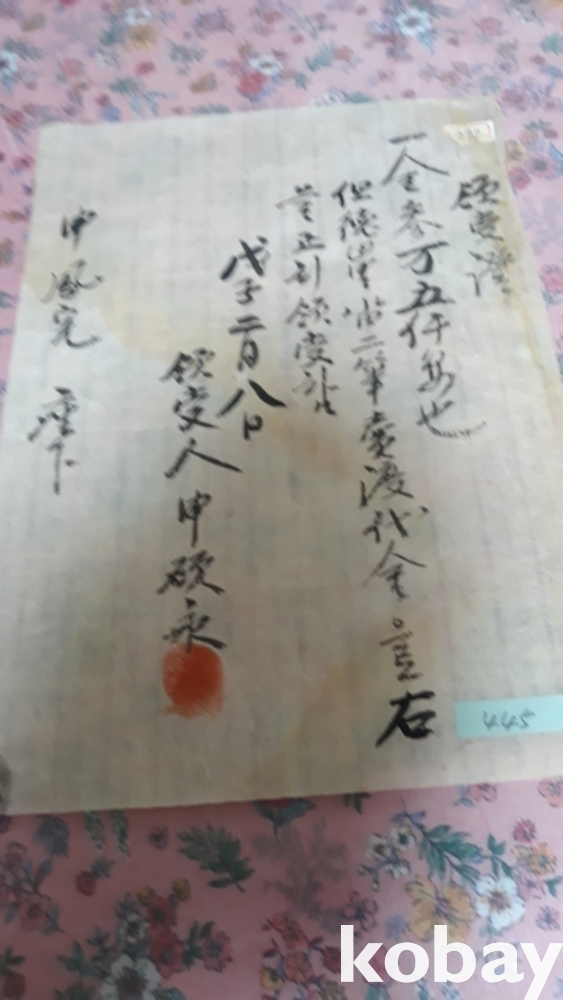 領受證
一金參万五仟원也
但 畓二筆賣渡代金 右
正히領受함
戊子二月八日
領受人申硯永
申鳳完 座下
445
kobay